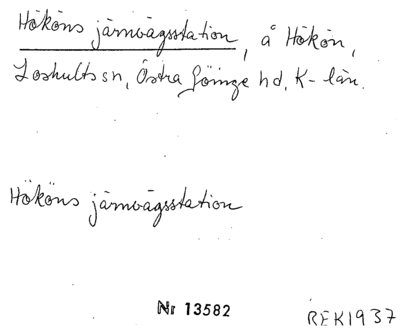 Hököns järnvägsstation, å Hökön,
Loshults sn, Östra Göinge hd, K-län.
Hököns järnvägsstation
Nr 13582
REK1937